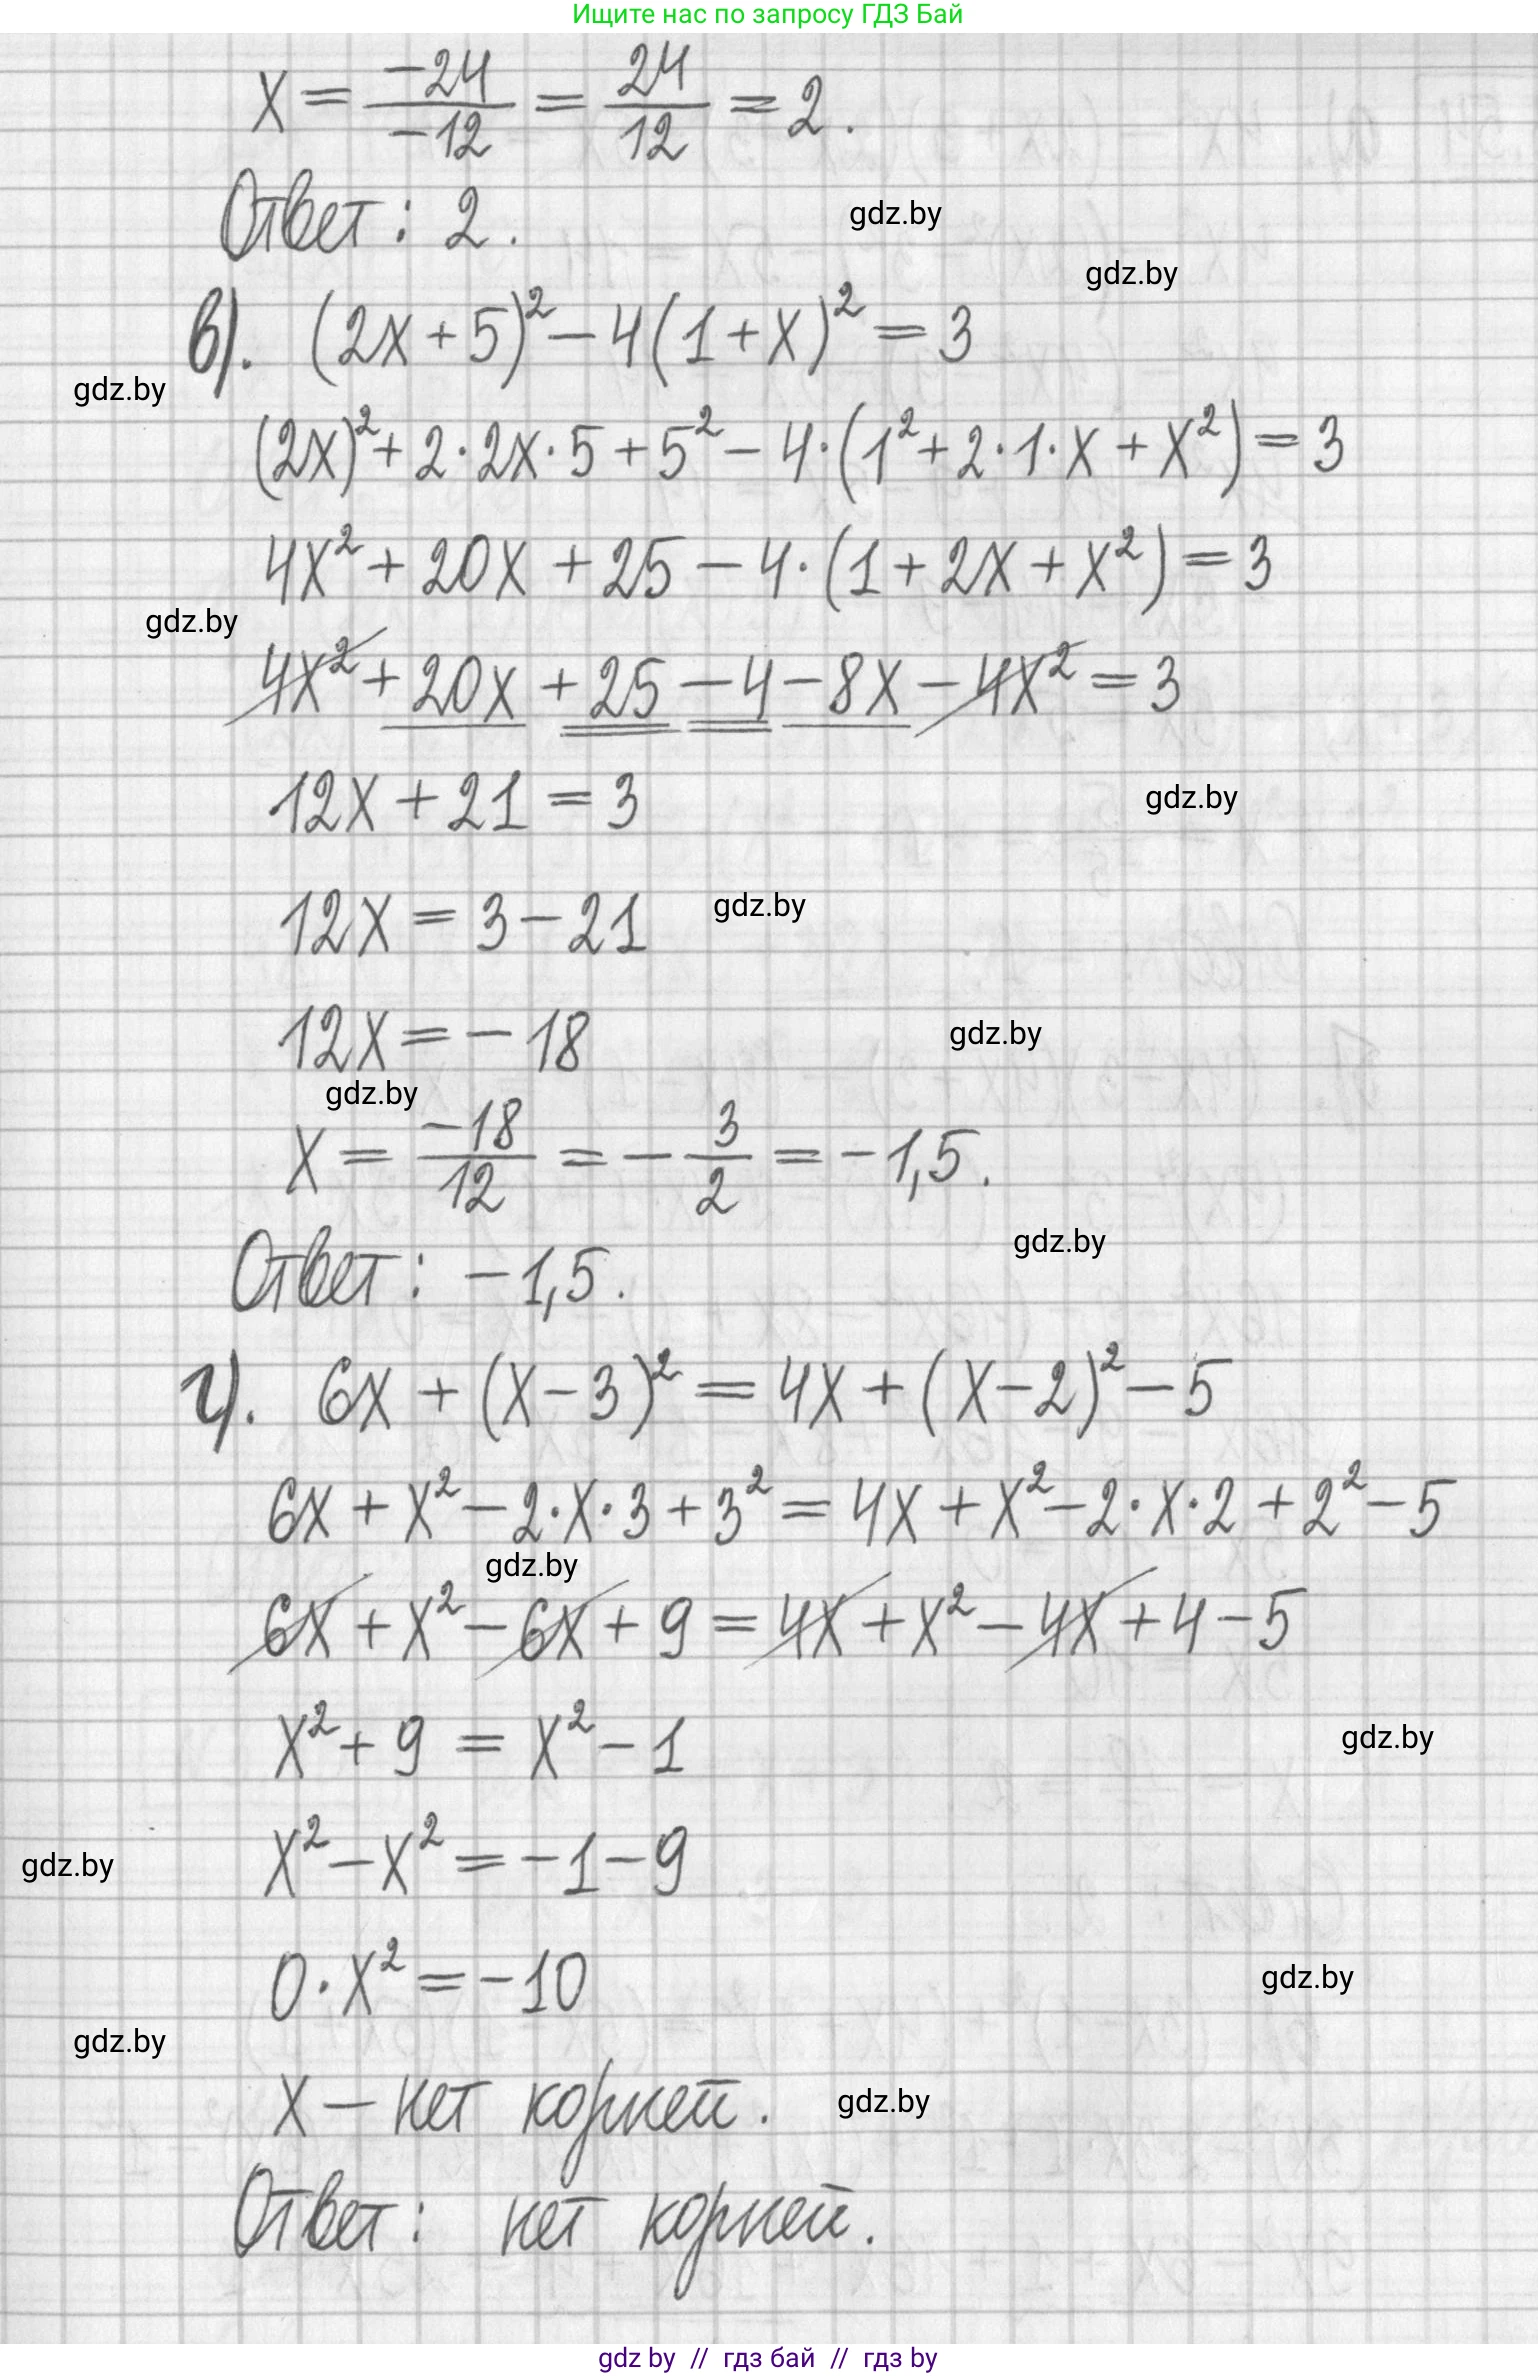 Ищите нас по запросу ГДЗ Бай
x = -24/-12 = 24/12 = 2.
Ответ: 2.
gdz.by
gdz.by
в). (2x + 5)² - 4(1 + x)² = 3
gdz.by
(2x)² + 2·2x·5 + 5² - 4·(1² + 2·1·x + x²) = 3
4x² + 20x + 25 - 4·(1 + 2x + x²) = 3
gdz.by
4x² + 20x + 25 - 4 - 8x - 4x² = 3
12x + 21 = 3
gdz.by
12x = 3 - 21
gdz.by
12x = -18
gdz.by
gdz.by
x = -18/12 = -3/2 = -1,5.
gdz.by
Ответ: -1,5.
г). 6x + (x - 3)² = 4x + (x - 2)² - 5
6x + x² - 2·x·3 + 3² = 4x + x² - 2·x·2 + 2² - 5
gdz.by
6x + x² - 6x + 9 = 4x + x² - 4x + 4 - 5
x² + 9 = x² - 1
gdz.by
x² - x² = -1 - 9
gdz.by
0·x² = -10
gdz.by
gdz.by
x - нет корней.
gdz.by
Ответ: нет корней.
gdz by // гдз бай // гдз by